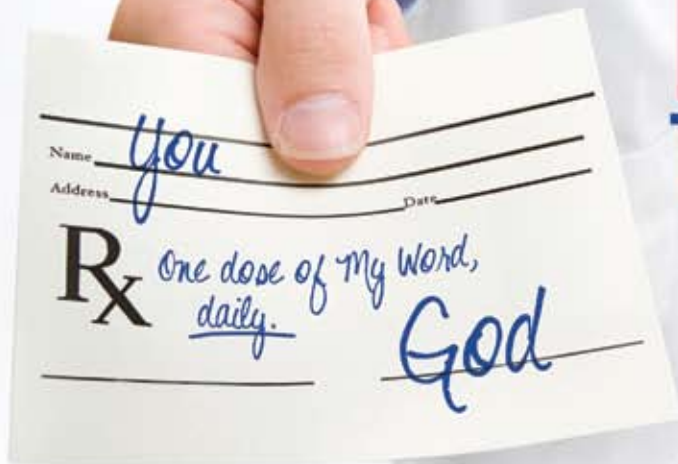 Name you
Address Date
Rx One dose of My Word,
daily.
God